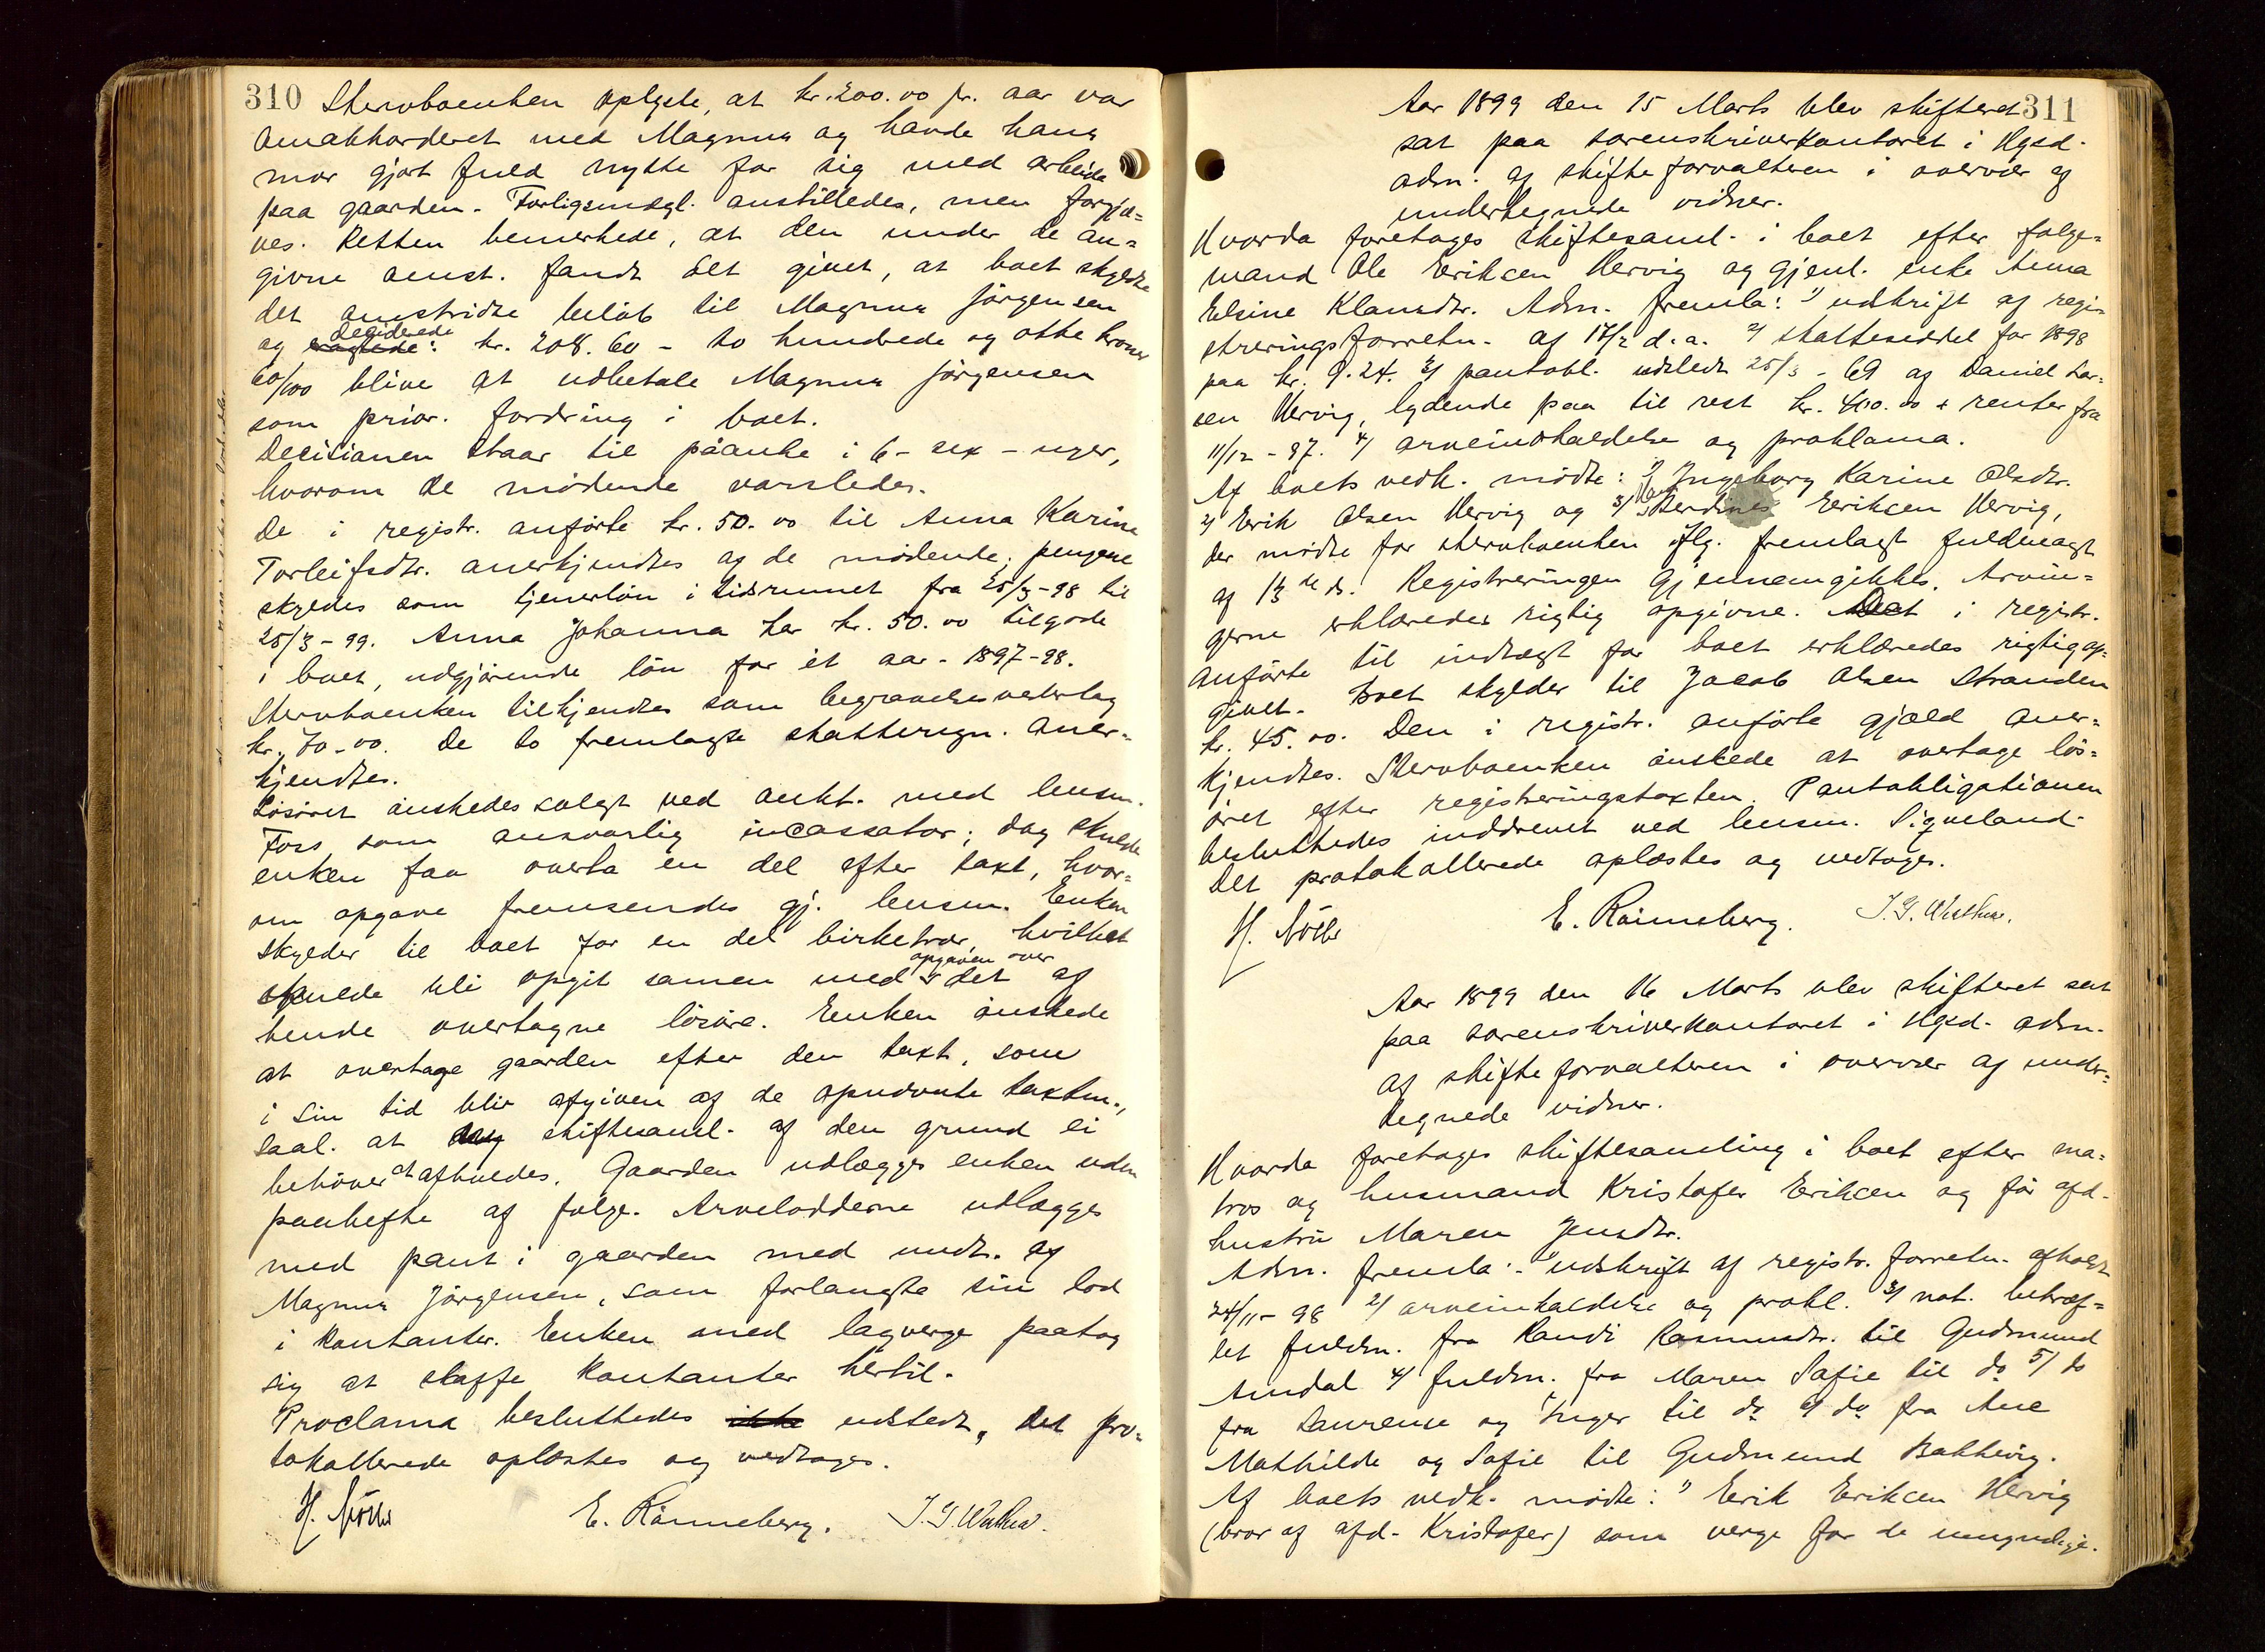 310 Stervboenken oplyste, at kr. 200.00 pr. aar var
omakkorderet med Magnus og havde hans
mor gjort fuld nytte for sig med arbeide
paa gaarden. Forligsmægl. anstilledes, men forgjæ=
ves. Retten bemerkede, at den under de an=
givne omst. fandt det givet, at boet skyldte
det omstridte beløb til Magnus Jørgensen
og deciderede: kr. 208.60 - to hundrede og otte kroner
60/100 blive at udbetale Magnus Jørgensen
som prior. fordring i boet.
Decisionen staar til påanke i 6 - sex - uger,
hvorom de mødende varsledes.
De i registr. anførte kr. 50.00 til Anna Karine
Torleifsdtr. anerkjendtes af de mødende; pengene
skyldes som tjenerløn i tidsrummet fra 25/3-98 til
25/3-99. Anna Johanna har kr. 50.00 tilgode
i boet, udgjørende løn for ét aar - 1897-98.
Stervboenken tilkjendtes som begravelsesvederlag
kr. 70.00. De to fremlagte skatteregn. aner=
kjendtes.
Løsøret ønskedes solgt ved aukt. med lensm.
Foss som ansvarlig incassator; dog skulde
enken faa overta en del efter taxt, hvor=
om opgave fremsendes gj. lensm. Enken
skylder til boet for en del birketrær, hvilket
skulde bli opgit sammen med opgaven over det af
hende overtagne løsøre. Enken ønskede
at overtage gaarden efter den taxt, som
i sin tid blir afgiven af de opnævnte taxtm.,
saal. at skiftesaml. af den grund ei
behøver at afholdes. Gaarden udlægges enken uden
paahefte af følge. Arvelodderne udlægges
med pant i gaarden med undt. af
Magnus Jørgensen, som forlangte sin lod
i kontanter. Enken med lagverge paatog
sig at skaffe kontanter hertil.
Proclama besluttedes udstedt. Det pro=
tokollerede oplæstes og vedtoges.
E. Rønneberg.
Aar 1899 den 15 Marts blev skifteret 311
sat paa sorenskriverkontoret i Hgsd.
adm. af skifteforvalteren i overvær af
undertegnede vidner.
Hvorda foretoges skiftesaml. i boet efter følge=
mand Ole Eriksen Hervig og gjenl. enke Anna
Elsine Klausdtr. Adm. fremla: 1) udskrift af regi=
streringsforretn. af 17/2 d.a. 2) skatteseddel for 1898
paa kr. 9.24. 3) pantobl. udstedt 25/3 - 69 af Daniel Lar=
sen Hervig, lydende paa til rest kr. 400.00 + renter fra
11/12 - 97. 4) arveindkaldelse og proklama.
Af boets vedk. mødte: 1) Ingeborg Karine Olsdtr.
2) Erik Olsen Hervig og 3) Berdines Eriksen Hervig,
der mødte for stervboenken iflg. fremlagt fuldmagt
af 13de ds. Registreringen gjennemgikkes. Arvin=
gerne erklæredes rigtig opgivne. Det i registr.
anførte til indtægt for boet erklæredes rigtig op=
givet. Boet skylder til Jacob Olsen Stranden
kr. 45.00. Den i registr. anførte gjæld aner=
kjendtes. Stervboenken ønskede at overtage løs=
øret efter registreringstaxten. Pantobligationen
besluttedes inddrevet ved lensm. Sigveland.
Det protokollerede oplæstes og vedtoges.
E. Rønneberg.
Aar 1899 den 16 Marts blev skifteret sat
paa sorenskriverkontoret i Hgsd. adm.
af skifteforvalteren i overvær af under=
tegnede vidner.
Hvorda foretoges skiftesamling i boet efter ma=
tros og husmand Kristofer Eriksen og før afd.
hustru Maren Jensdtr.
Adm. fremla: 1) udskrift af registr. forretn. afholdt
24/11 - 98 2) arveindkaldelse og prokl. 3) not. bekræf=
tet fuldm. fra Randi Rasmusdtr. til Gudmund
Amdal 4) fuldm. fra Maren Sofie til do 5) do
fra Laurense og Inger til do 6) do fra Ane
Mathilde og Sofie til Gudmund Bakkevig.
Af boets vedk. mødte: 1) Erik Eriksen Hervig
(bror af afd. Kristofer) som verge for de umyndige.